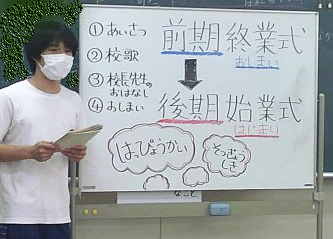 ①あいさつ
②校歌
③校長先生のおはなし
④おしまい
前期終業式
おしまい
後期始業式
はじまり
はっぴょうかい
そつぎょうしき
なごと